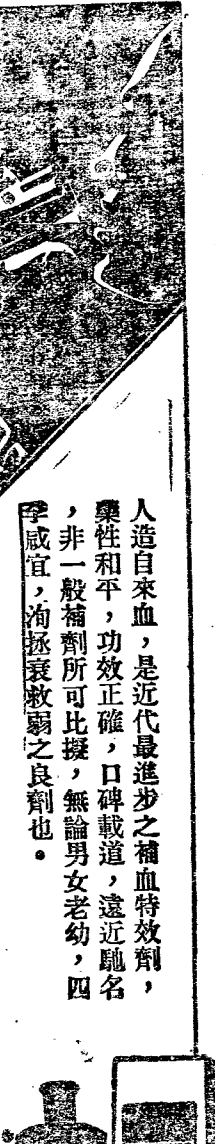 人造自來血，是近代最進步之補血特效劑，
藥性和平，功效正確，口碑載道，遠近馳名
，非一般補劑所可比擬，無論男女老幼，四
季咸宜，洵拯衰救弱之良劑也。